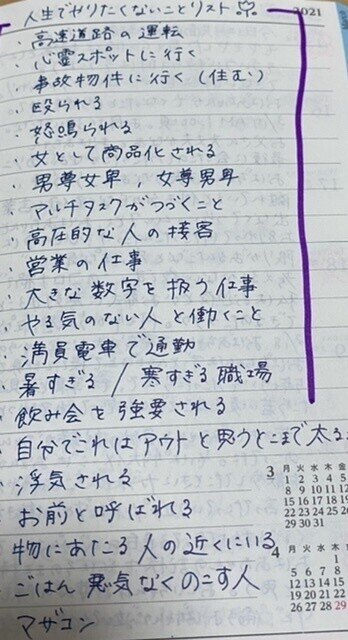 人生でやりたくないことリスト
2021
・高速道路の運転
・心霊スポットに行く
・事故物件に行く(住む)
・殴られる
・怒鳴られる
・女として商品化される
・男尊女卑,女尊男卑
・マルチタスクがつづくこと
・高圧的な人の接客
・営業の仕事
・大きな数字を扱う仕事
・やる気のない人と働くこと
・満員電車で通勤
・暑すぎる/寒すぎる職場
・飲み会を強要される
・自分でこれはアウトと思うとこまで太る
・浮気される
お前と呼ばれる
物にあたる人の近くにいる
ごはん悪気なくのこす人
マザコン
3 月 火 水 木 金
1 2 3 4 5
8 9 10 11 12
15 16 17 18 19
22 23 24 25 26
29 30 31
4 月 火 水 木 金
1
5 6 7 8
12 13 14 15
19 20 21 22
26 27 28 29